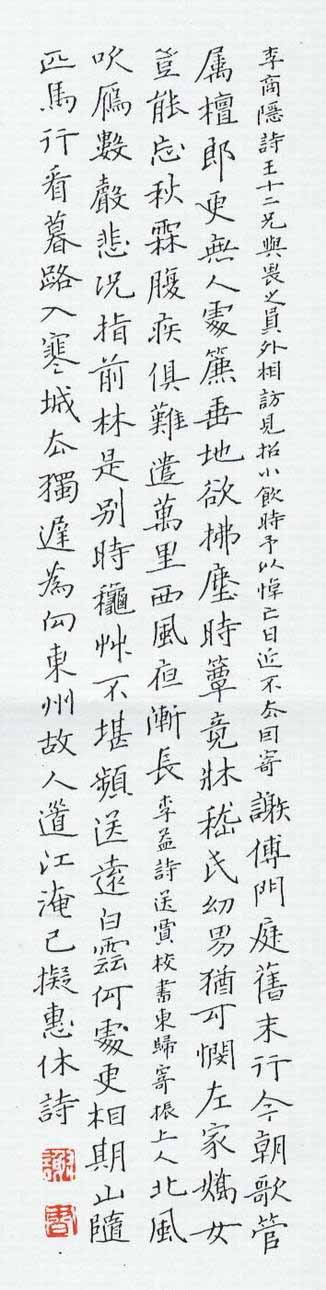 李商隱詩王十二兄與畏之員外相訪見招小飲時予以悼亡日近不去因寄謝傅門庭舊末行今朝歌管
属檀郎更無人處簾垂地欲拂塵時簟竟牀嵇氏幼男猶可憫左家嬌女
豈能忘秋霖腹疾俱難遣萬里西風夜漸長李益詩送賈校書東歸寄振上人北風
吹鴈數聲悲況指前林是别時龝艸不堪頻送遠白雲何處更相期山隨
匹馬行看暮路入寒城去獨遲為向東州故人道江淹已擬惠休詩